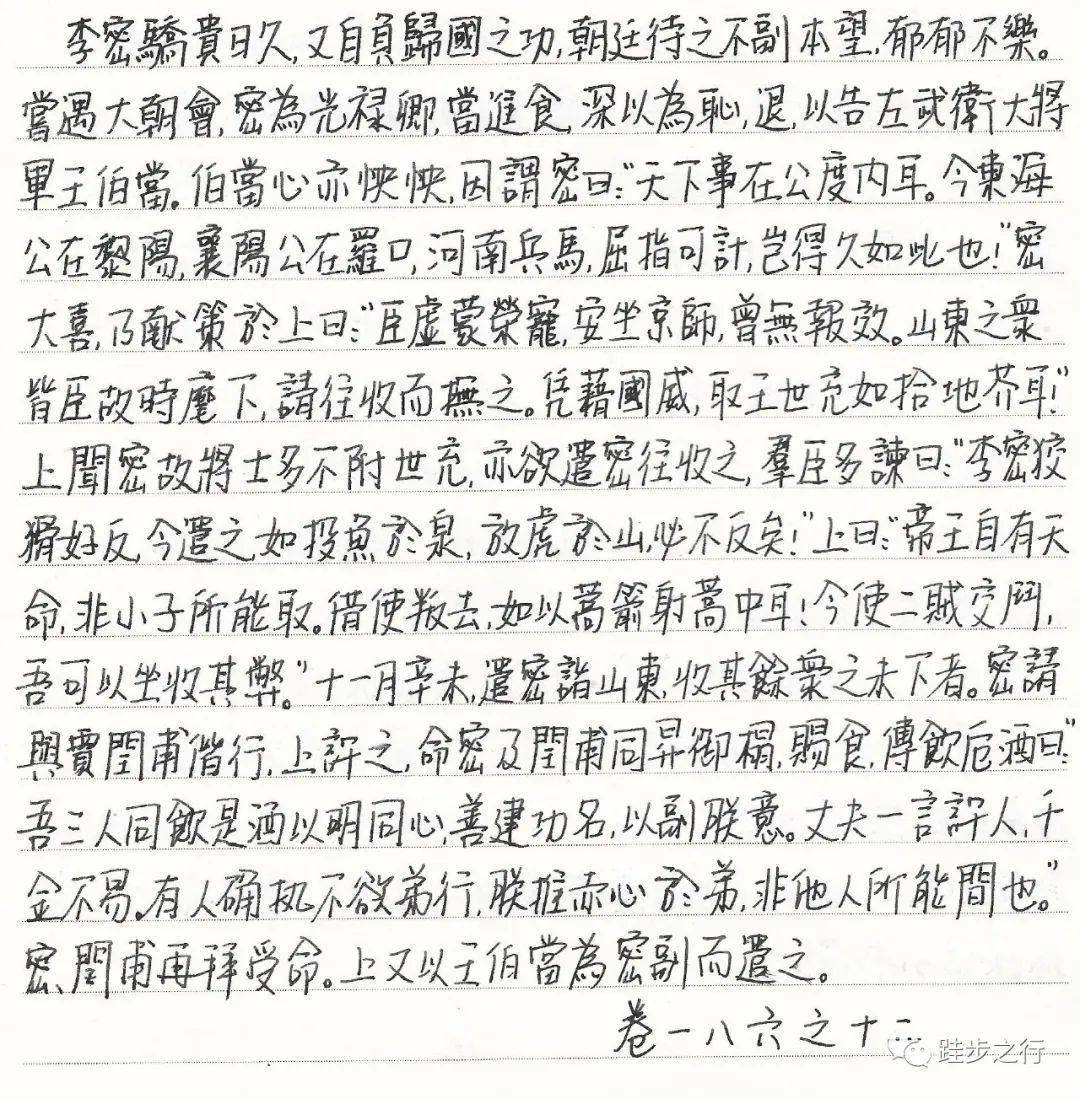 李密驕貴日久,又自負歸國之功,朝廷待之不副本望,郁郁不樂。
嘗遇大朝會,密為光禄卿,當進食,深以為恥,退,以告左武衛大將
軍王伯當。伯當心亦怏怏,因謂密曰:“天下事在公度内耳。今東海
公在黎陽,襄陽公在羅口,河南兵馬,屈指可計,豈得久如此也!”密
大喜,乃獻策於上曰:“臣虚蒙榮寵,安坐京師,曾無報效。山東之衆
皆臣故時麾下,請往收而撫之。凭藉國威,取王世充如拾地芥耳!”
上聞密故將士多不附世充,亦欲遣密往收之,羣臣多諫曰:“李密狡
猾好反,今遣之如投魚於泉,放虎於山,必不反矣!”上曰:“帝王自有天
命,非小子所能取。借使叛去,如以蒿箭射蒿中耳!今使二賊交鬥,
吾可以坐收其弊。”十一月辛未,遣密詣山東,收其餘衆之未下者。密請
與賈閏甫偕行,上許之,命密及閏甫同昇御榻,賜食,傳飲卮酒曰:“
吾三人同飲是酒以明同心,善建功名,以副朕意。丈夫一言許人,千
金不易。有人确执不欲弟行,朕推赤心於弟,非他人所能間也。”
密、閏甫再拜受命。上又以王伯當為密副而遣之。
卷一八六之十二
跬步之行